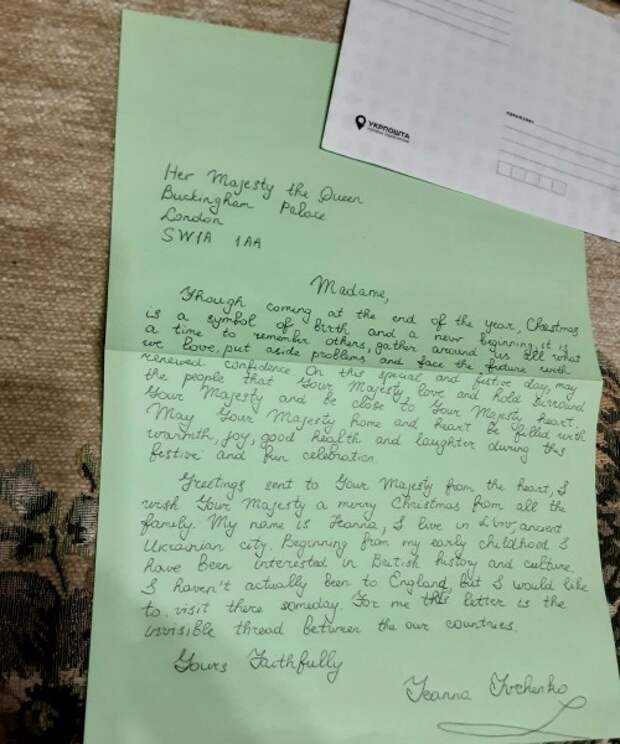 УКРПОШТА
Her Majesty the Queen
Buckingham Palace
London
SW1A 1AA
Madame,
Though coming at the end of the year, Christmas
is a symbol of birth and a new beginning, it is
a time to remember others, gather around us all what
we love, put aside problems and face the future with
renewed confidence. On this special and festive day, may
the people that Your Majesty love and hold surround
Your Majesty and be close to Your Majesty heart.
May Your Majesty home and heart be filled with
warmth, joy, good health and laughter during this
festive and fun celebration.
Greetings sent to Your Majesty from the heart, I
wish Your Majesty a merry Christmas from all the
family. My name is Jeanna, I live in Lviv, ancient
Ukrainian city. Beginning from my early childhood I
have been interested in British history and culture.
I haven't actually been to England, but I would like
to visit there someday. For me this letter is the
invisible thread between the our countries.
Yours Faithfully
Jeanna Ivchenko